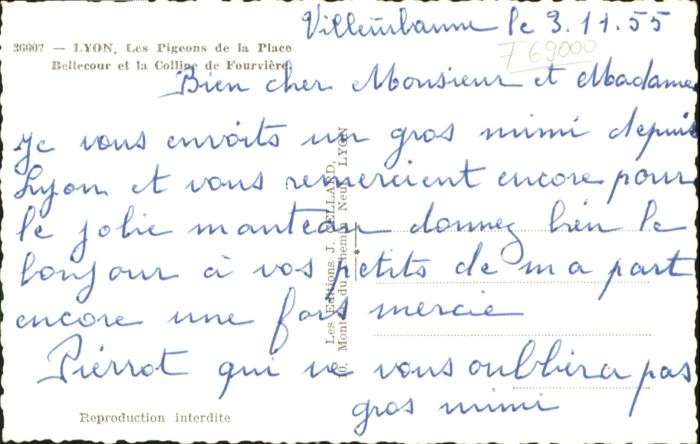 Villeurbanne le 3.11.55
36007 — LYON. Les Pigeons de la Place
Bellecour et la Colline de Fourvière.
F 69000
Bien cher Monsieur et Madame
Je vous envoits un gros mimi depuis
Lyon et vous remercient encore pour
le jolie manteau donnez bien le
bonjour à vos petits de ma part
encore une fois mercie
Pierrot qui ne vous oubliera pas
gros mimi
Les Editions J. CELLARD,
Montée du Chemin Neuf, LYON
Reproduction interdite